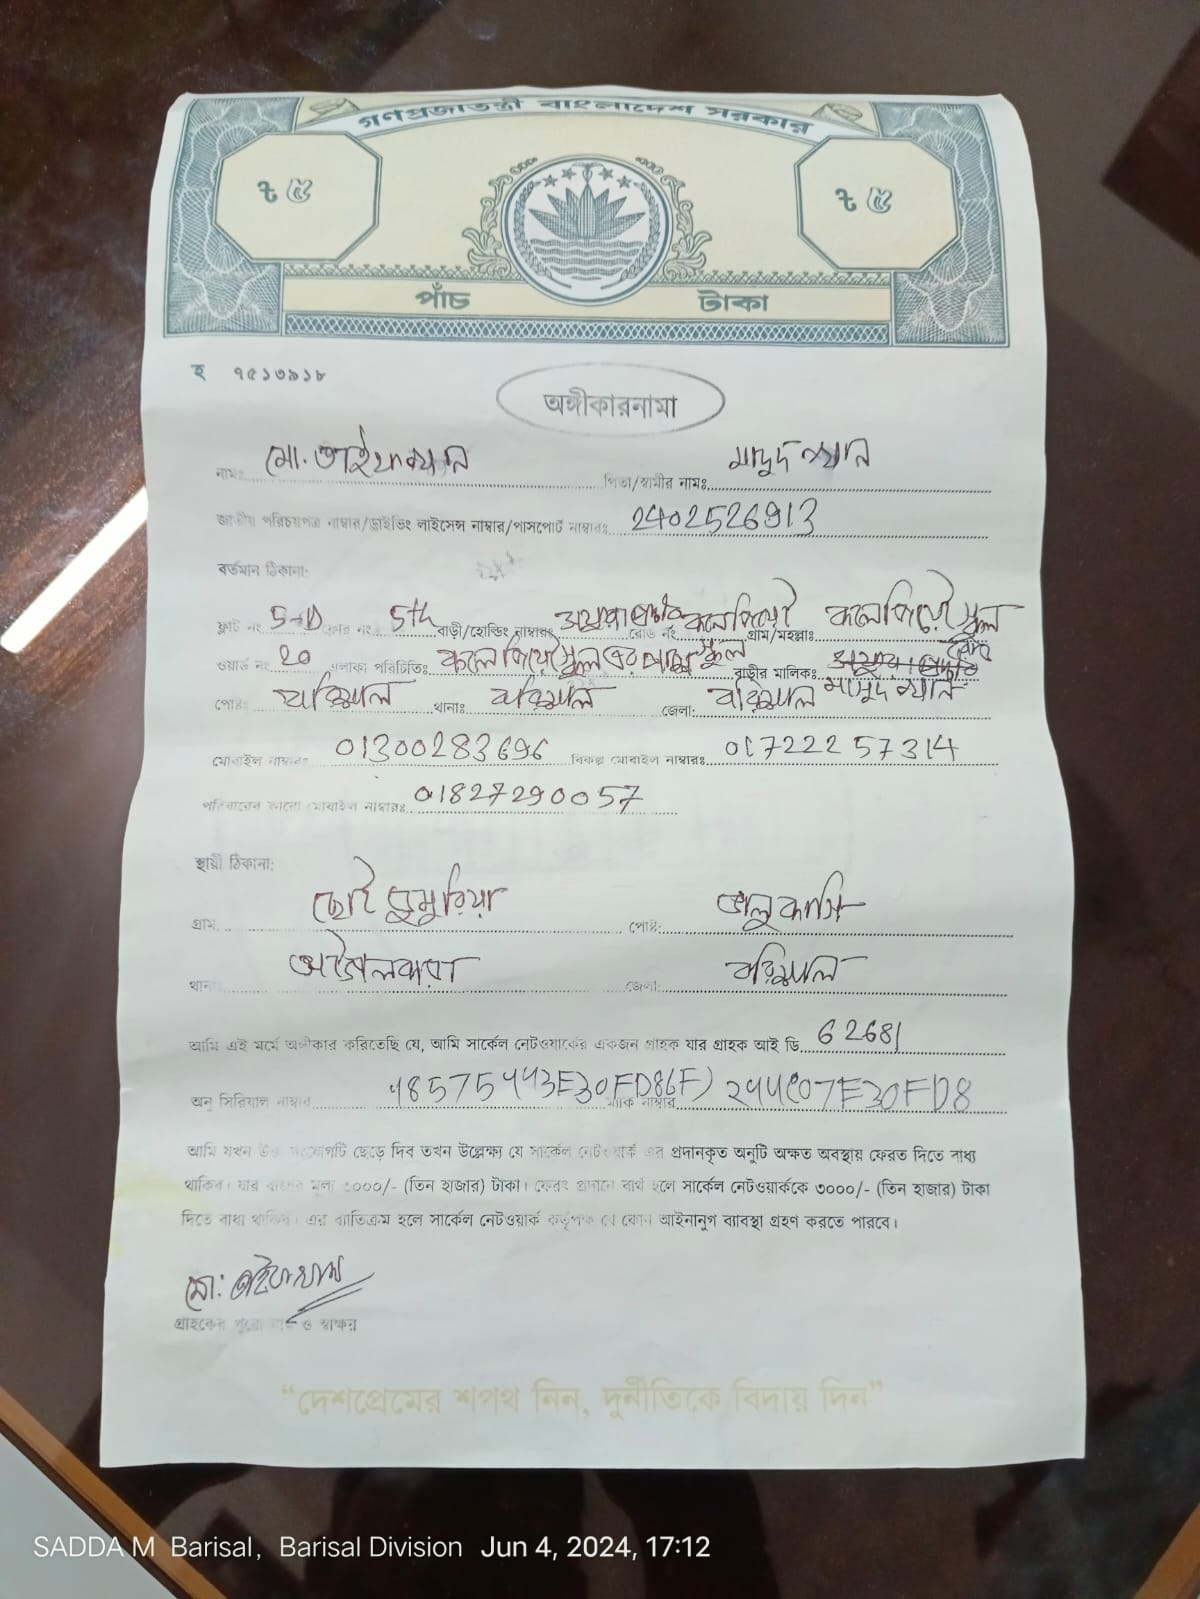 গণপ্রজাতন্ত্রী বাংলাদেশ সরকার
৳ ৫ ৳ ৫
পাঁচ টাকা
হ ৭৫১৩৯১৮
অঙ্গীকারনামা
নামঃ মো. পিতা/স্বামীর নামঃ
জাতীয় পরিচয়পত্র নাম্বার/ড্রাইভিং লাইসেন্স নাম্বার/পাসপোর্ট নাম্বারঃ 2402526913
বর্তমান ঠিকানা:
ফ্লাট নং 5-D নং 5th বাড়ী/হোল্ডিং নাম্বারঃ রোড নং গ্রাম/মহল্লাঃ
ওয়ার্ড নং 20 এলাকা পরিচিতিঃ এর স্কুল বাড়ীর মালিকঃ
পোষ্টঃ বরিশাল থানাঃ বরিশাল জেলা: বরিশাল
মোবাইল নাম্বারঃ 01300283696 বিকল্প মোবাইল নাম্বারঃ 01722257314
পরিবারের কারো মোবাইল নাম্বারঃ 01827290057
স্থায়ী ঠিকানা:
গ্রাম পোষ্ট:
থানা: জেলা: বরিশাল
আমি এই মর্মে অঙ্গীকার করিতেছি যে, আমি সার্কেল নেটওয়ার্কের একজন গ্রাহক যার গ্রাহক আই ডি 62681
অনু সিরিয়াল নাম্বার ম্যাক নাম্বার
আমি যখন উক্ত সংযোগটি ছেড়ে দিব তখন উল্লেক্ষ্য যে সার্কেল নেটওয়ার্ক এর প্রদানকৃত অনুটি অক্ষত অবস্থায় ফেরত দিতে বাধ্য
থাকিব। যার বাজার মূল্য ৩০০০/- (তিন হাজার) টাকা। ফেরৎ প্রদানে ব্যর্থ হলে সার্কেল নেটওয়ার্ককে ৩০০০/- (তিন হাজার) টাকা
দিতে বাধ্য থাকিব। এর ব্যতিক্রম হলে সার্কেল নেটওয়ার্ক কর্তৃপক্ষ যে কোন আইনানুগ ব্যাবস্থা গ্রহণ করতে পারবে।
মো:
গ্রাহকের পুরো নাম ও স্বাক্ষর
“দেশপ্রেমের শপথ নিন, দুর্নীতিকে বিদায় দিন”
SADDA M Barisal, Barisal Division Jun 4, 2024, 17:12